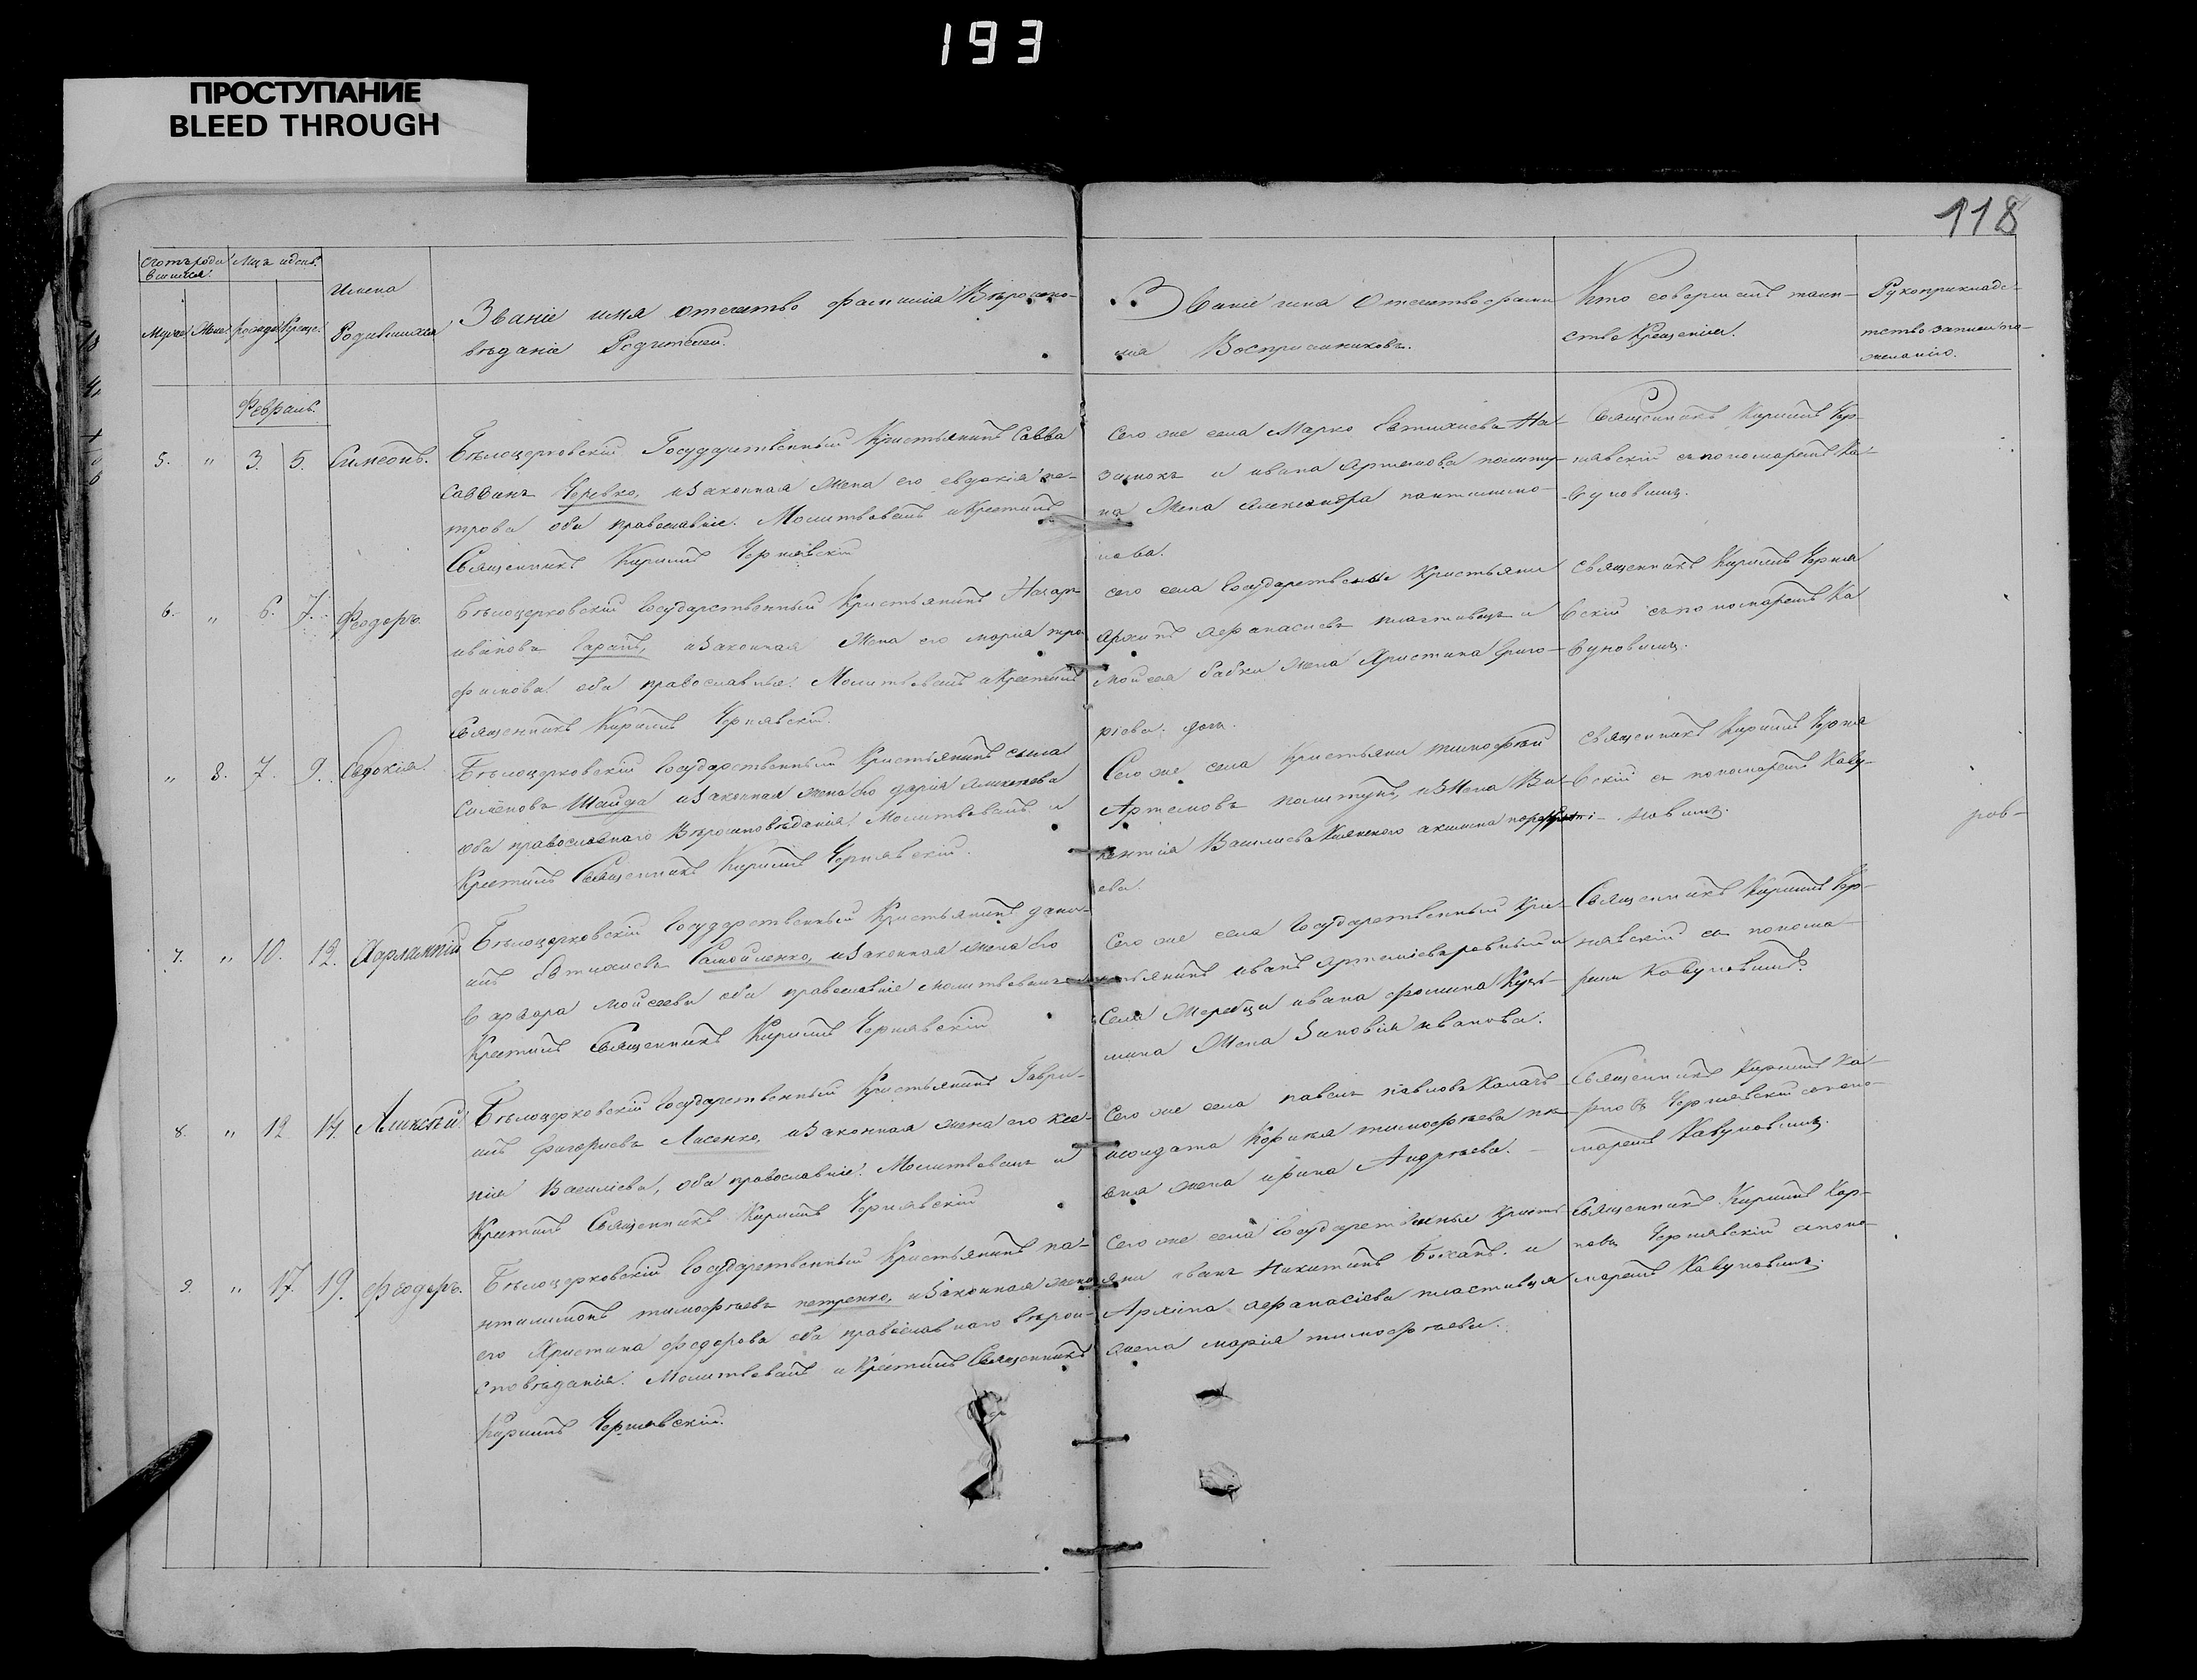 193
ПРОСТУПАНИЕ
BLEED THROUGH
118
Счетъ роди
вшихся.
Мца и день.
Муже. Женс. рожде. Креще.
Имена
Родившихся
Званіе имя отечество фамилія Вѣроиспо-
вѣданіе Родителей.
Званіе имя Отечество фами
лія Воспріимниковъ.
Кто совершалъ таин-
ство Крещенія.
Рукоприкладс-
тво записи по
желанію.
Февраль.
5. " 3. 5. Симеонъ.
Бѣлоцерковскій Государственный Крестьянинъ Савва
Саввинъ Черевко, и Законная Жена его евдокія пе-
трова оба православніе. Молитвовалъ и Крестилъ
Священникъ Кирилъ Чернявскій
Сего же села Марко Евтихиевъ На
и ивана Артемова
на Жена Александра пантилимо-
нова.
Священникъ Кирилъ Чер-
нявскій съ пономаремъ Ка-
буновичъ.
6. " 6. 7. Феодоръ.
Бѣлоцерковскій Государственный Крестьянинъ Назаръ
ивановъ Гаранъ, и Законная Жена его марія тро-
фимова оба православніе. Молитвовалъ и Крестилъ
Священникъ Кирилъ Чернявскій.
сего села Государственные Крестьяни
Архипъ Афанасиевъ пластивецъ и
Мойсея бабки Жена Христина Григо-
ріева дочь.
Священникъ Кирилъ Черня
вскій съ пономаремъ Ка
буновичъ.
" 3. 7. 9. Евдокія.
Бѣлоцерковскій Государственный Крестьянинъ
Симеоновъ Шайда и Законная Жена его дарія Алексеева
оба православнаго Вѣроисповѣданія Молитвовалъ и
Крестилъ Священникъ Кирилъ Чернявскій.
Сего же села Крестьяни тимофѣй
Артемовъ
Василиева
ева.
Священникъ Кирилъ Черня
вскій съ пономаремъ Кабу-
новичъ.
ров-
7. " 10. 12. Харлампій
Бѣлоцерковскій Государственный Крестьянинъ дани-
илъ Евтихиевъ Самойленко, и Законная Жена его
варвара мойсеева оба православніе молитвовалъ и
Крестилъ Священникъ Кирилъ Чернявскій
Сего же села Государственный Кре-
стьянинъ иванъ Артемиевъ и
села Жеребца ивана Фомина Кузь-
мина Жена Зиновія иванова.
Священникъ Кирилъ Чер-
нявскій съ понома-
ремъ Кабуновичъ.
8. " 12 14. Аликсѣй
Бѣлоцерковскій Государственный Крестьянинъ Гаври-
илъ Григориевъ Лисенко, и Законная жена его ксе-
нія Василіева, оба православніе. Молитвовалъ и
Крестилъ Священникъ Кирилъ Чернявскій
Сего же села павелъ павловъ Калачъ
солдата Корнія тимофѣева
жена ирина Андрѣева.
Священникъ Кирилъ Ка-
рповъ Чернявскій съ поно-
маремъ Кабуновичъ.
9. " 17. 19. Феодоръ.
Бѣлоцерковскій Государственный Крестьянинъ па-
нтилимонъ тимофѣевъ петренко, и Законная Жена
его Христина федорова оба православнаго вѣрои-
сповѣданія. Молитвовалъ и Крестилъ Священникъ
Кирилъ Чернявскій.
Сего же села Государственные Кресть-
яни иванъ Никитинъ Боханъ. и
Архипа Афанасіева пластивца
жена марія тимофѣева.
Священникъ Кирилъ Кар-
повъ Чернявскій съ поно-
маремъ Кабуновичъ.